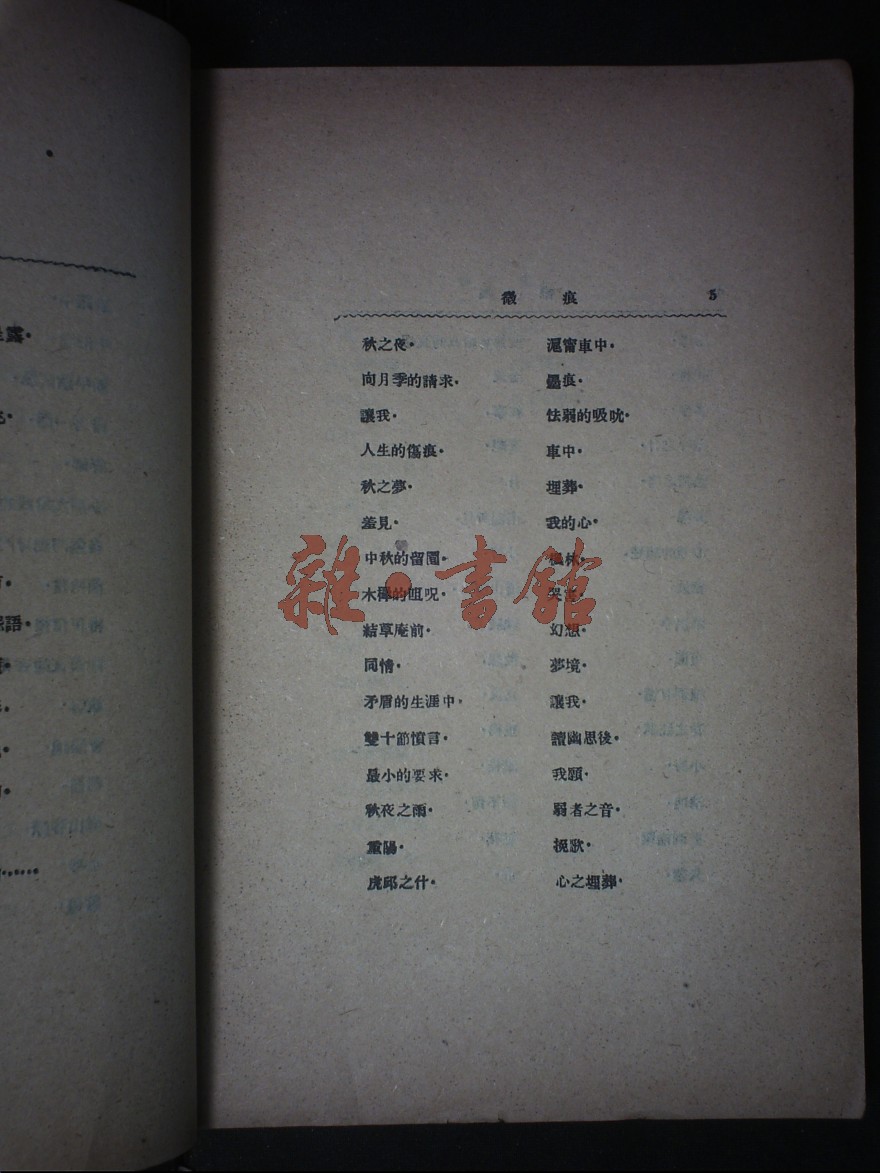 微痕 5
秋之夜· 滬甯車中·
向月季的請求· 墨痕·
讓我· 怯弱的吸吮·
人生的傷痕· 車中·
秋之夢· 埋葬·
羞見· 我的心·
中秋的留園· 楓林·
木鐸的咀呪·
結草庵前· 幻想·
同情· 夢境·
矛盾的生涯中· 讓我·
雙十節憤言· 讀幽思後·
最小的要求· 我願·
秋夜之雨· 弱者之音·
重陽· 挽歌·
虎邱之什· 心之埋葬·
雜·書館
露·
語·